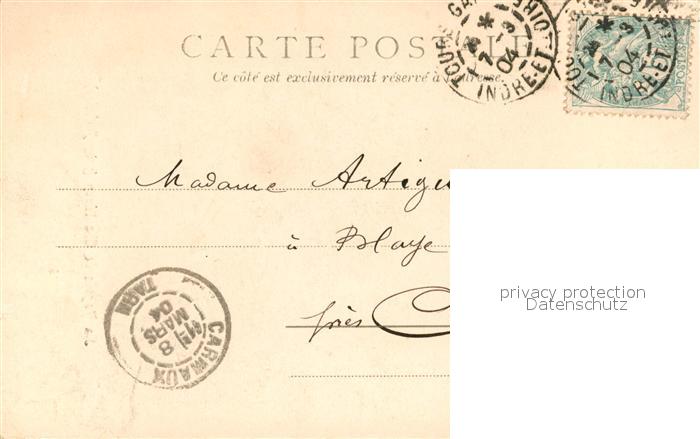 CARTE POSTALE
Ce côté est exclusivement réservé à l'adresse.
TOURS GA
7 3
04
INDRE-ET-LOIRE
7 3
04
INDRE-ET
Madame Artigu
à Blaye
près C
privacy protection
Datenschutz
CARMAUX
8
MARS
04
TARN